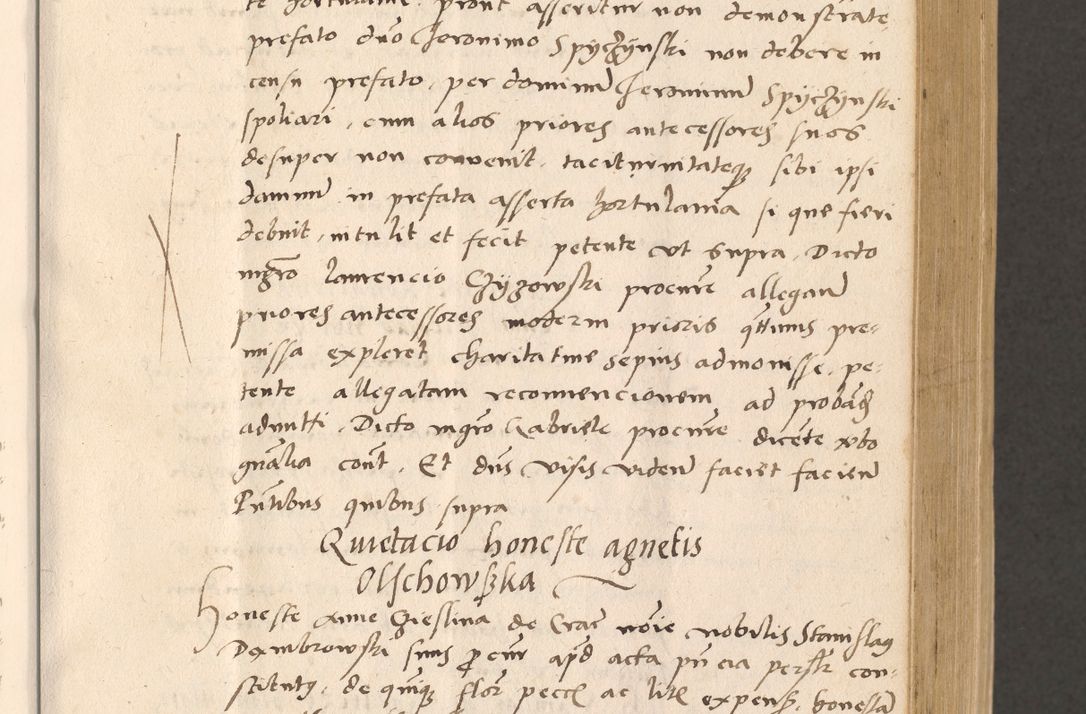 te hortulanie. pront asseritur non demonstrate
prefato dno Jeronimo Spÿczÿnski non debere in
censu prefato, per dominū Jeronimū Spÿczÿnski
spoliari, cum alios priores antecessores suos
desuper non convenit. taciturnitateq sibi ipsi
damnū in prefata asserta hortulania si que fieri
debuit, intulit et fecit petente vt supra. Dicto
mgro laurencio Czÿzowski procure allegan
priores antecessores moderni prioris qtinus pre-
missa expleret charitatiue sepius admonisse. pe-
tente allegatam reconuencionem ad proband
admitti. Dicto mgro Gabriele procure dicente vbo
gnalia cont. Et dns visis viden faciet facien
Pntibus quibus supra
Quietacio honeste agnetis
Olschowska
Honeste Anne Cieslina de Crac noie nobilis Stanislaus
Dambrowski suus procur apd acta pn cia personalr con-
stitutus, de quinque flor pecc ac litis expens. honestā